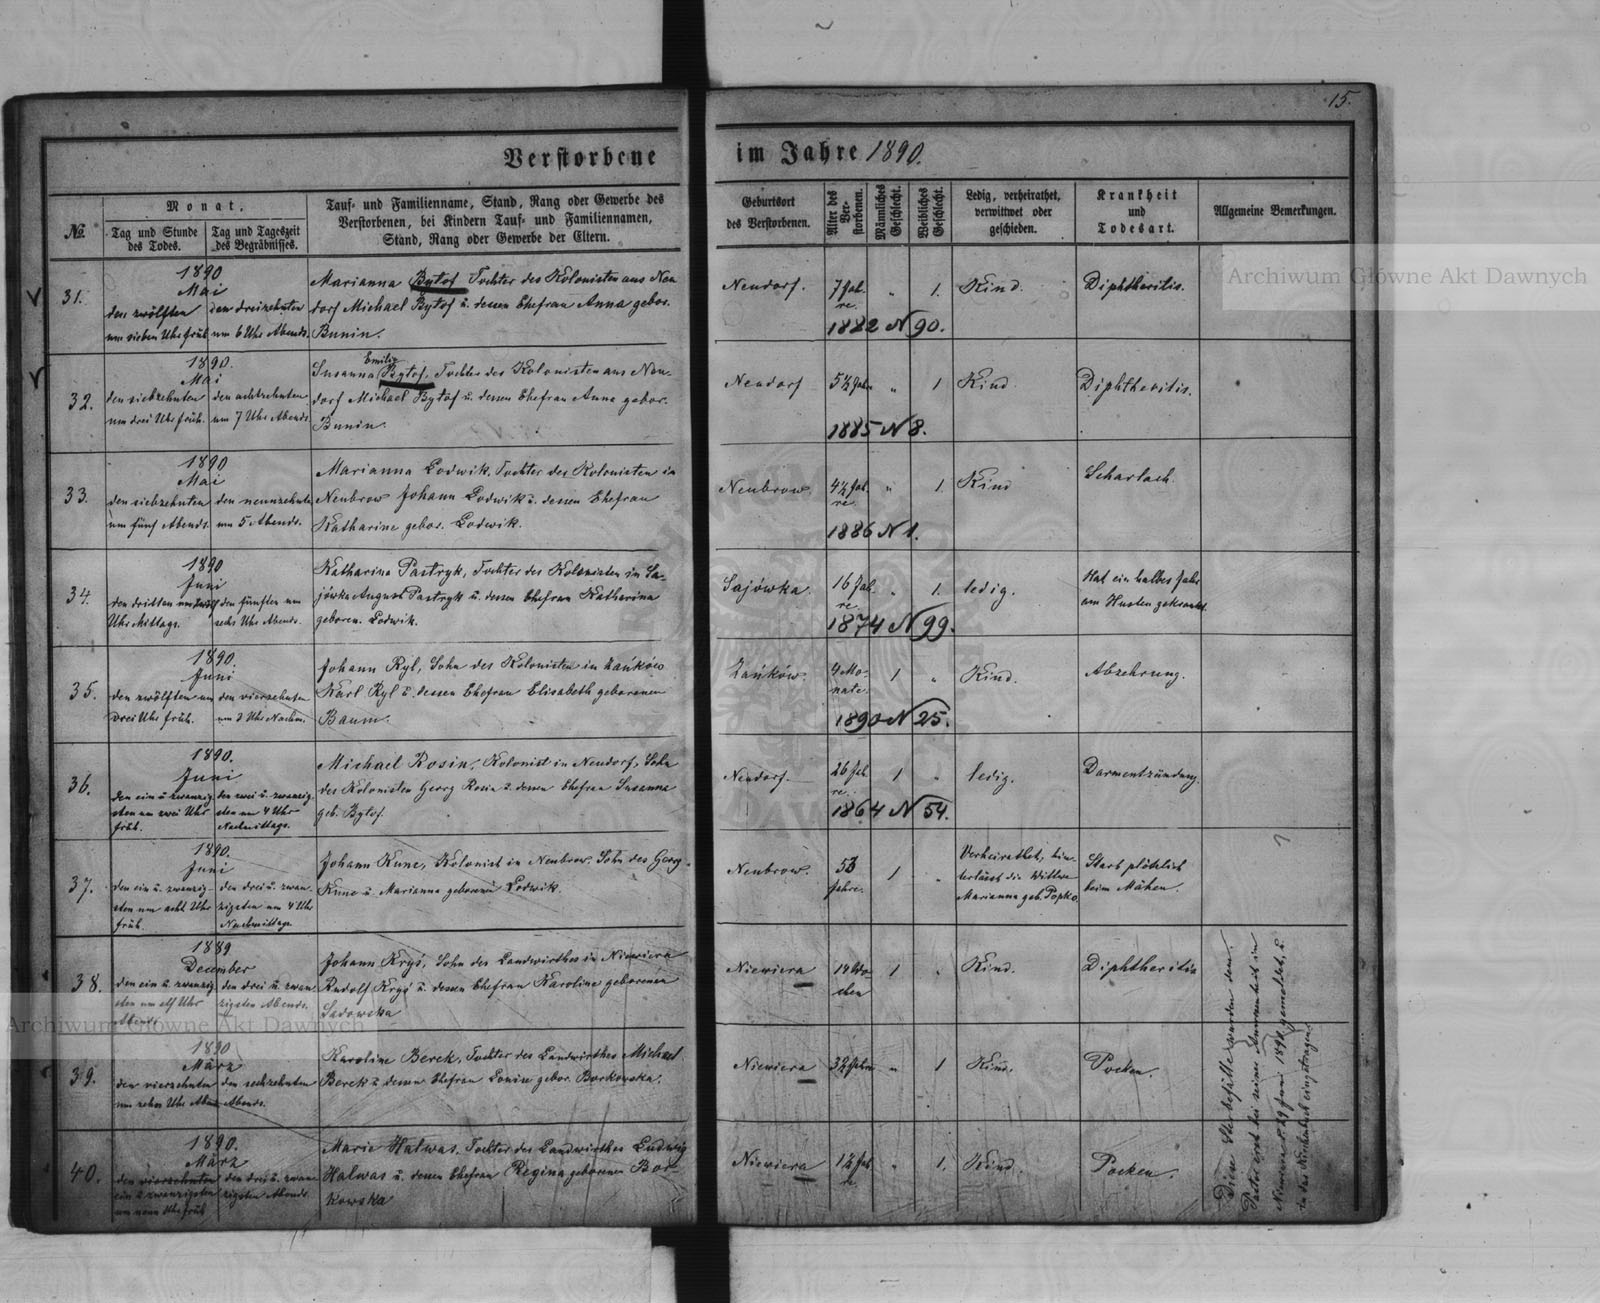 15.
Verstorbene im Jahre 1890.
No.
Monat.
Tag und Stunde des Todes.
Tag und Tageszeit des Begräbnisses.
Tauf- und Familienname, Stand, Rang oder Gewerbe des
Verstorbenen, bei Kindern Tauf- und Familiennamen,
Stand, Rang oder Gewerbe der Eltern.
Geburtsort
des Verstorbenen.
Alter des Verstorbenen.
Männliches Geschlecht.
Weibliches Geschlecht.
Ledig, verheirathet,
verwittwet oder
geschieden.
Krankheit
und
Todesart.
Allgemeine Bemerkungen.
31.
1890
Mai
den zwölften
um sieben Uhr früh
den dreizehnten
um 6 Uhr Abends.
Marianna Bytof Tochter des Kolonisten aus Neu
dorf Michael Bytof u. dessen Ehefrau Anna gebor.
Bunin.
Neudorf.
7 Jah
re
1882 N 90.
"
1.
Kind.
Diphtheritis.
32.
1890.
Mai
den siebzehnten
um drei Uhr früh.
den achtzehnten
um 7 Uhr Abends.
Emilie
Susanna Bytof, Tochter des Kolonisten aus Neu-
dorf Michael Bytof u. dessen Ehefrau Anna gebor.
Bunin.
Neudorf
5½ Jah.
1885 N 8.
"
1
Kind
Diphtheritis.
33.
1890
Mai
den siebzehnten
um fünf Abends.
den neunzehnten
um 5 Abends.
Marianna Lodwik, Tochter des Kolonisten in
Neubrow Johann Lodwik u. dessen Ehefrau
Katharine gebor. Lodwik.
Neubrow.
4½ Jah.
re.
1886 N 1.
"
1.
Kind
Scharlach.
34.
1890
Juni
den dritten um
Uhr Mittags.
den fünften um
sechs Uhr Abends.
Katharina Pastryk, Tochter des Kolonisten in Sa-
jówka August Pastryk u. dessen Ehefrau Katharina
geboren. Lodwik.
Sajówka.
16 Jah
re
1874 N 99.
"
1.
ledig.
Hat ein halbes Jahr
am Husten gekrankt.
35.
1890.
Juni
den zwölften um
drei Uhr früh.
den vierzehnten
um 3 Uhr Nachm.
Johann Ryl, Sohn des Kolonisten in Zańków
Karl Ryl u. dessen Ehefrau Elisabeth geborenen
Baum.
Zańków.
4 Mo-
nate.
1890 N 25.
1
"
Kind.
Abzehrung.
36.
1890.
Juni
den ein u. zwanzig-
sten um zwei Uhr
früh.
den zwei u. zwanzig-
sten um 4 Uhr
Nachmittags.
Michael Rosin, Kolonist in Neudorf, Sohn
des Kolonisten Georg Rosin u. dessen Ehefrau Susanna
geb. Bytof.
Neudorf.
26 Jah
re.
1864 N 54.
1
"
ledig.
Darmentzündung.
37.
1890.
Juni
den ein u. zwanzig-
sten um acht Uhr
früh.
den drei u. zwan-
zigsten um 4 Uhr
Nachmittags.
Johann Kunc, Kolonist in Neubrow. Sohn des Georg
Kunc u. Marianna geborenen Lodwik.
Neubrow.
53
Jahre.
1
"
Verheirathet, hin-
terlässt die Wittwe
Marianna geb. Popko.
Starb plötzlich
beim Mähen.
38.
1889
December
den ein u. zwanzig-
sten um elf Uhr
Abends
den drei u. zwan
zigsten Abends.
Johann Kryś, Sohn des Landwirthes in Niewiera
Rudolf Kryś u. dessen Ehefrau Karoline geborenen
Sadowska
Niewiera
14 Wo
chen
1
"
Kind.
Diphtheritis
39.
1890
März
den vierzehnten
um zehn Uhr
den sechzehnten
Abends.
Karoline Berek, Tochter des Landwirthes Michael
Berek u. dessen Ehefrau Louise gebor. Borkowska.
Niewiera
"
1
Kind.
Pocken.
40.
1890.
März
ein u. zwanzigsten
um neun Uhr früh
den drei u. zwan
zigsten Abends
Marie Halwas, Tochter des Landwirthes Ludwig
Halwas u. dessen Ehefrau Regina geborenen Bor-
kowska
Niewiera
1½ Jah
re
"
1.
Kind.
Pocken.
Diese Sterbefälle wurden dem
Pastor erst bei seiner Anwesenheit in
Niewiera d. 29 Juni 1890 gemeldet, u.
in das Kirchenbuch eingetragen.
Archiwum Główne Akt Dawnych
Archiwum Główne Akt Dawnych